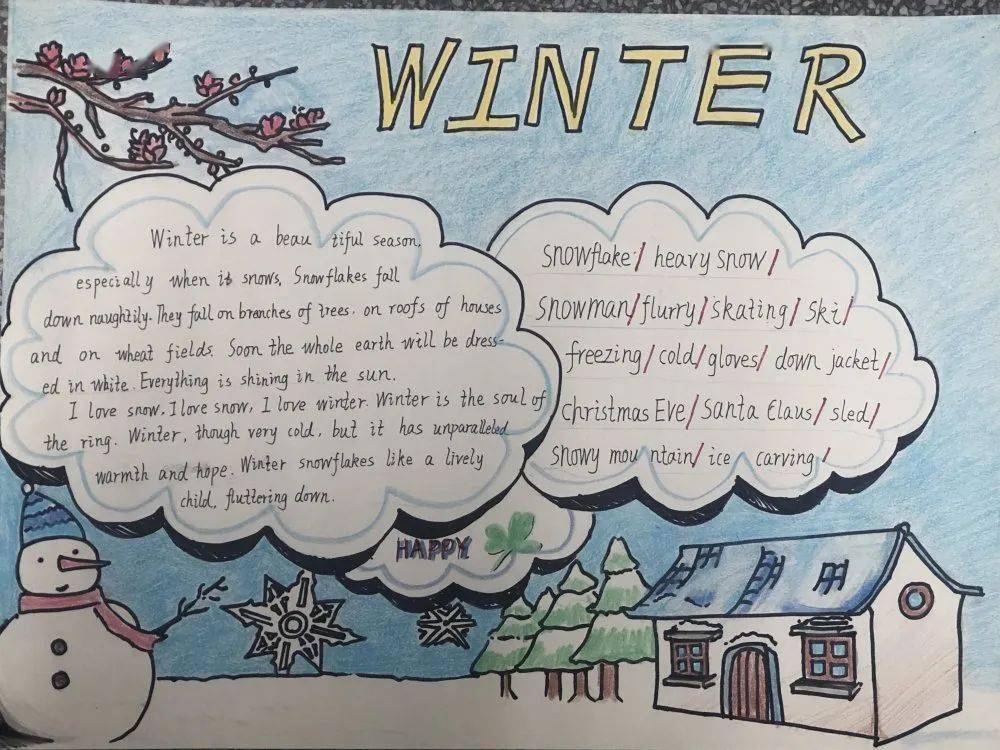 WINTER
Winter is a beau tiful season,
especially when it snows, Snowflakes fall
down naughtily. They fall on branches of trees. on roofs of houses
and on wheat fields. Soon the whole earth will be dress-
ed in white. Everything is shining in the sun.
I love snow, I love snow, I love winter. Winter is the soul of
the ring. Winter, though very cold, but it has unparalleled
warmth and hope. Winter snowflakes like a lively
child, fluttering down.
snowflake/ heavy snow/
snowman/ flurry/ skating/ Ski/
freezing/ cold/ gloves/ down jacket/
christmas Eve/ santa Claus/ sled/
snowy mou ntain/ ice carving/
HAPPY